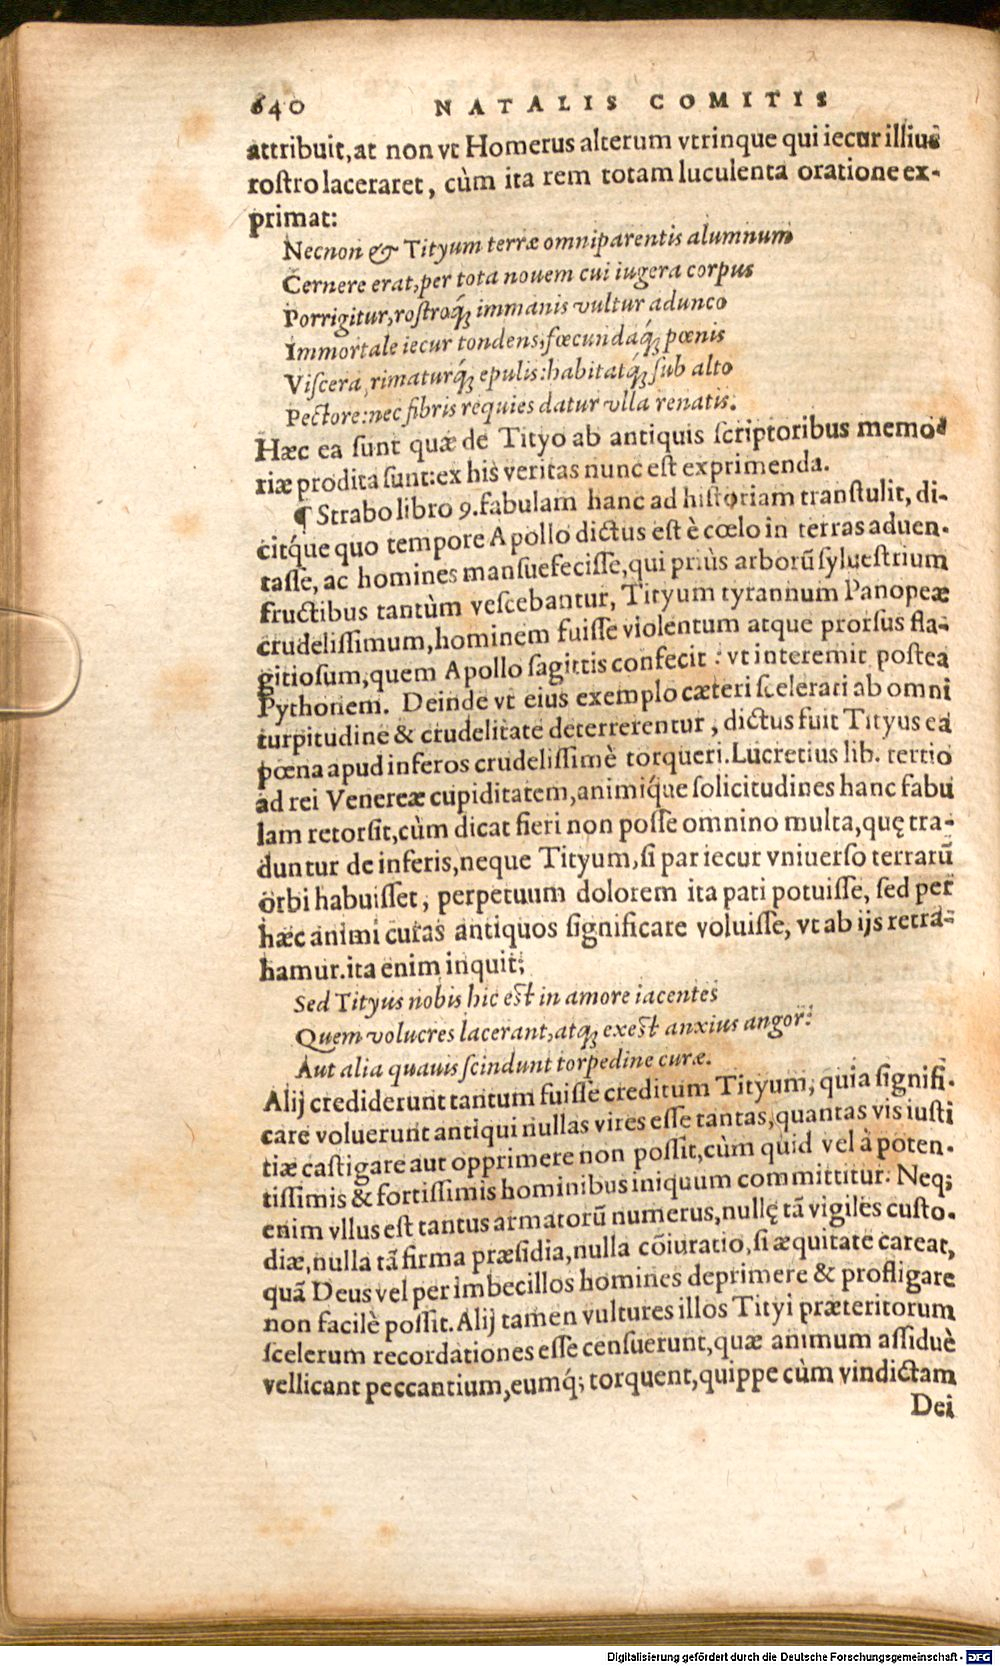 640 NATALIS COMITIS
attribuit, at non vt Homerus alterum vtrinque qui iecur illius
roſtro laceraret, cùm ita rem totam luculenta oratione ex-
primat:
Necnon & Tityum terræ omniparentis alumnum
Cernere erat, per tota nouem cui iugera corpus
Porrigitur, roſtroq́; immanis vultur adunco
Immortale iecur tondens, fœcundaq́; pœnis
Viſcera, rimaturq́; epulis: habitatq́; ſub alto
Pectore: nec fibris requies datur vlla renatis.
Hæc ea ſunt quæ de Tityo ab antiquis ſcriptoribus memo-
riæ prodita ſunt: ex his veritas nunc eſt exprimenda.
¶ Strabo libro 9. fabulam hanc ad hiſtoriam tranſtulit, di-
citq́ue quo tempore Apollo dictus eſt è cœlo in terras aduen-
taſſe, ac homines manſuefeciſſe, qui priùs arborũ ſylueſtrium
fructibus tantùm veſcebantur, Tityum tyrannum Panopeæ
crudeliſſimum, hominem fuiſſe violentum atque prorſus fla-
gitioſum, quem Apollo ſagittis confecit: vt interemit poſtea
Pythonem. Deinde vt eius exemplo cæteri ſcelerati ab omni
turpitudine & crudelitate deterrerentur, dictus fuit Tityus ea
pœna apud inferos crudeliſſimè torqueri. Lucretius lib. tertio
ad rei Venereæ cupiditatem, animiq́ue ſolicitudines hanc fabu
lam retorſit, cùm dicat fieri non poſſe omnino multa, quę tra-
duntur de inferis, neque Tityum, ſi par iecur vniuerſo terrarũ
orbi habuiſſet, perpetuum dolorem ita pati potuiſſe, ſed per
hæc animi curas antiquos ſignificare voluiſſe, vt ab ijs retra-
hamur. ita enim inquit;
Sed Tityus nobis hic eſt in amore iacentes
Quem volucres lacerant, atq; exeſt anxius angor:
Aut alia quauis ſcindunt torpedine curæ.
Alij crediderunt tantum fuiſſe creditum Tityum, quia ſignifi-
care voluerunt antiqui nullas vires eſſe tantas, quantas vis iuſti
tiæ caſtigare aut opprimere non poſſit, cùm quid vel à poten-
tiſſimis & fortiſſimis hominibus iniquum committitur. Neq;
enim vllus eſt tantus armatorũ numerus, nullę tã vigiles cuſto-
diæ, nulla tã firma præſidia, nulla cõiuratio, ſi æquitate careat,
quã Deus vel per imbecillos homines deprimere & profligare
non facilè poſſit. Alij tamen vultures illos Tityi præteritorum
ſcelerum recordationes eſſe cenſuerunt, quæ animum aſſiduè
vellicant peccantium, eumq́; torquent, quippe cùm vindictam
Dei
Digitalisierung gefördert durch die Deutsche Forschungsgemeinschaft - DFG